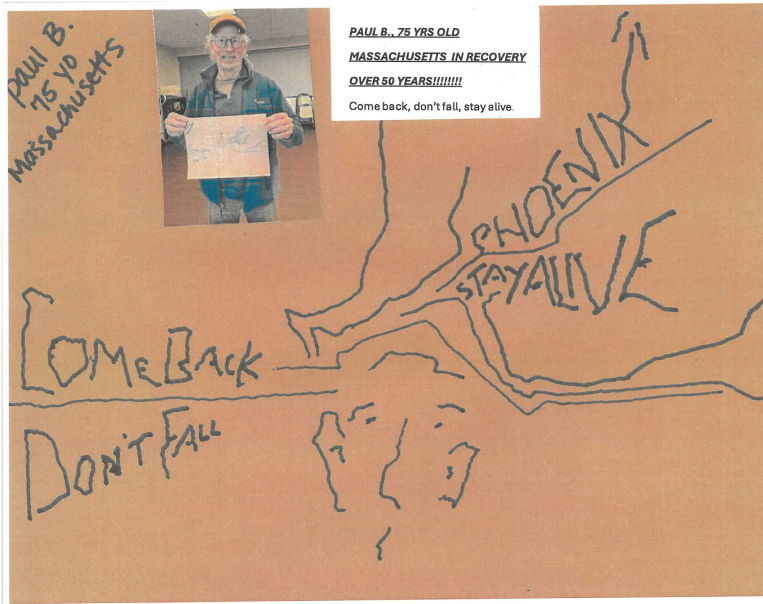 Paul B.
75 yo
Massachusetts
PAUL B., 75 YRS OLD
MASSACHUSETTS IN RECOVERY
OVER 50 YEARS!!!!!!!!
Come back, don't fall, stay alive.
PHOENIX
STAY ALIVE
COME BACK
DON'T FALL